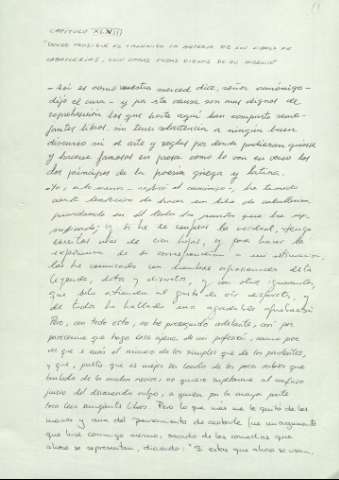 CAPITULO XLVIII
"DONDE PROSIGUE EL CANONIGO LA MATERIA DE LOS LIBROS DE
CABALLERIAS, CON OTRAS COSAS DIGNAS DE SU INGENIO"
- Así es como vuestra merced dice, señor canónigo -
dijo el cura - y por esta causa son más dignos de
reprehensión los que hasta aquí han compuesto seme-
jantes libros, sin tener advertencia a ningún buen
discurso ni al arte y reglas por donde pudieran guiarse
y hacerse famosos en prosa como lo son en verso los
dos príncipes de la poesía griega y latina.
- Yo, a lo menos - replicó el canónigo -, he tenido
cierta tentación de hacer un libro de caballerías
guardando en él todos los puntos que he sig-
nificado; y si he de confesar la verdad, tengo
escritas más de cien hojas, y para hacer la
experiencia de si correspondían a mi estimación,
las he comunicado con hombres apasionados desta
leyenda, dotos y discretos, y con otros ignorantes,
que sólo atienden al gusto de oír disparates, y
de todos he hallado una agradable aprobación
Pero, con todo esto, no he proseguido adelante, así por
parecerme que hago cosa ajena de mi profesión, como por
ver que es más el número de los simples que de los prudentes,
y que, puesto que es mejor ser loado de los pocos sabios que
burlado de los muchos necios, no quiero sujetarme al confuso
juicio del desvanecido vulgo, a quien por la mayor parte
toca leer semejantes libros. Pero lo que más me le quitó de las
manos y aun del pensamiento de acabarle fue un argumento
que hice conmigo mesmo, sacado de las comedias que
ahora se representan, diciendo: "Si estas que ahora se usan,